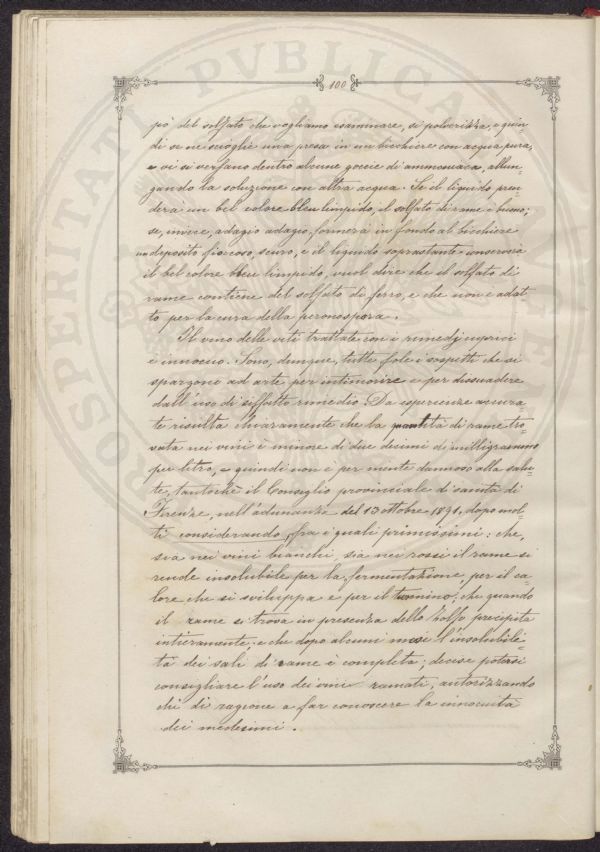 100
pò del solfato che vogliamo esaminare, si polverizza, e quin=
di se ne scioglie una presa in un bicchiere con acqua pura,
e vi si versano dentro alcune goccie di ammoniaca, allun=
gando la soluzione con altra acqua. Se il liquido pren
derà un bel colore bleu limpido, il solfato di rame è buono;
se, invece, adagio adagio, formerà in fondo al bicchiere
un deposito fioccoso, scuro, e il liquido soprastante conserverà
il bel colore bleu limpido, vuol dire che il solfato di
rame contiene del solfato di ferro, e che non è adat
to per la cura della peronospora.
Il vino delle viti trattate con i rimedj cuprici
è innocuo. Sono, dunque, tutte fole i sospetti che si
spargono ad arte per intimorire e per dissuadere
dall'uso di siffatto rimedio. Da esperienze accura=
te risulta chiaramente che la quantità di rame tro=
vata nei vini è minore di due decimi di milligrammo
per litro, e quindi non è per niente dannoso alla salu=
te, tantochè il Consiglio provinciale di sanità di
Firenze, nell'adunanza del 13 ottobre 1891, dopo mol=
ti considerando, fra i quali primissimi: che,
sia nei vini bianchi, sia nei rossi il rame si
rende insolubile per la fermentazione, per il ca=
lore che si sviluppa e per il tannino; che quando
il rame si trova in presenza dello zolfo precipita
intieramente; e che dopo alcuni mesi l'insolubili=
tà dei sali di rame è completa; decise potersi
consigliare l'uso dei vini ramati, autorizzando
chi di ragione a far conoscere la innocuità
dei medesimi.
PVBLICA